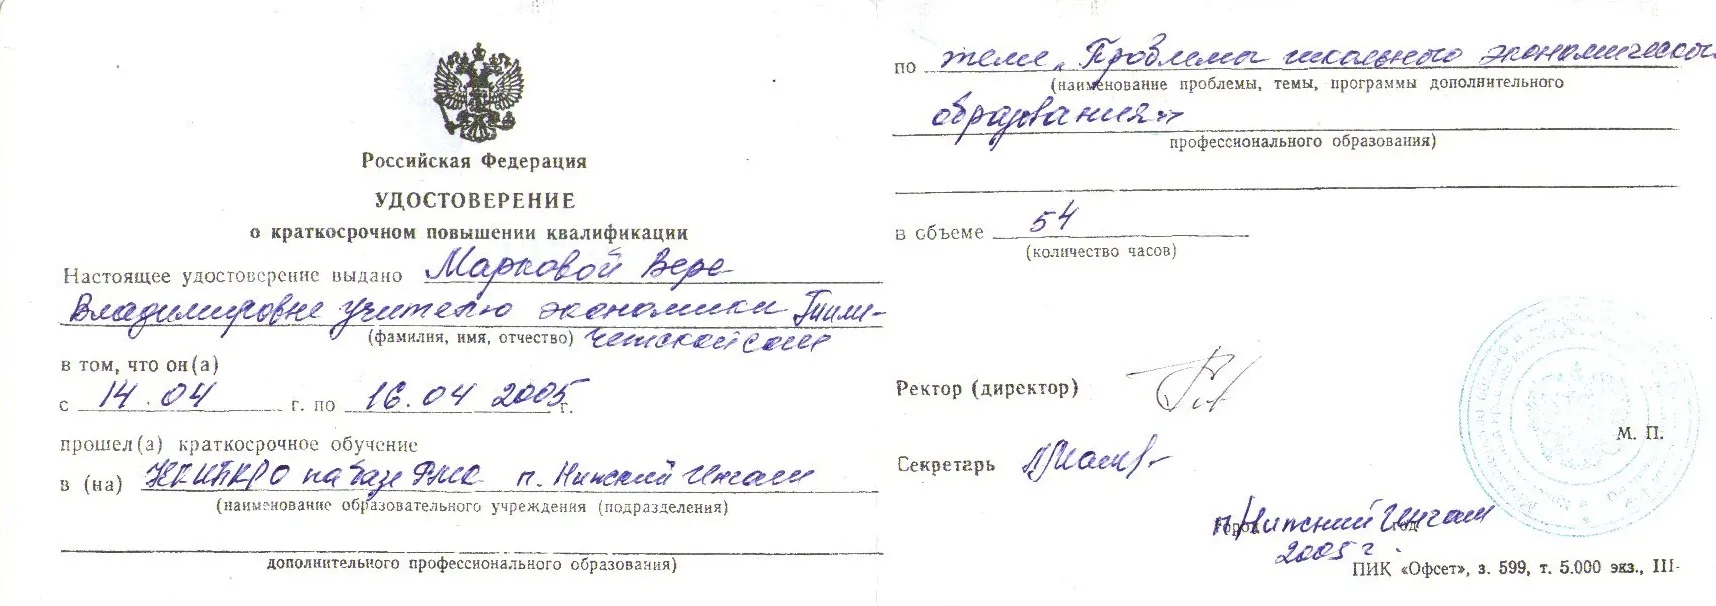 Российская Федерация
УДОСТОВЕРЕНИЕ
о краткосрочном повышении квалификации
Настоящее удостоверение выдано Марковой Вере
Владимировне учителю экономики Тили-
(фамилия, имя, отчество) четской сош
в том, что он(а)
с 14.04 г. по 16.04 2005 г.
прошел(а) краткосрочное обучение
в (на) ККИПКРО на базе РМК п. Нижний Ингаш
(наименование образовательного учреждения (подразделения)
дополнительного профессионального образования)
по теме „Проблемы школьного экономического
(наименование проблемы, темы, программы дополнительного
образования"
профессионального образования)
в объеме 54
(количество часов)
Ректор (директор)
М. П.
Секретарь
город п. Нижний Ингаш год
2005 г.
ПИК «Офсет», з. 599, т. 5.000 экз., III-